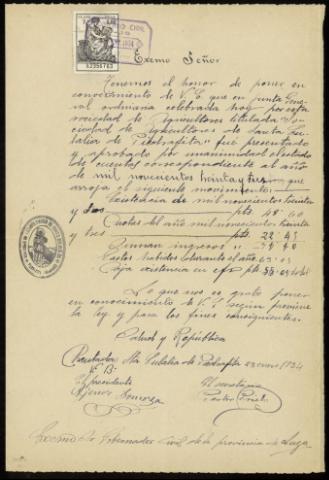 Exemo Señor
Tenemos el honor de poner en
conocimiento de V.E que en junta Gene
ral ordinaria celebrada hoy por esta
sociedad de Agricultores titulada "So
ciedad de Agricultores de Santa Eu
lalia de Piedrafita" fue presentado
y aprobado por unanimidad el estado
de cuentas correspondiente al año
de mil novecientos treinta y tres que
arroja el siguiente movimiento:
Existencia de mil novecientos treinta
y dos pts
Cuotas del año mil novecientos treinta
y tres pts 22.45
Suman ingresos
Gastos habidos durante el año
Fija existencia en pts
Lo que nos es grato poner
en conocimiento de V.E según previene
la ley y para los fines consiguientes.
Salud y República
Sta Eulalia de Piedrafita enero 1934
Vº Bº
El presidente El secretario
Exemo Sr Gobernador Civil de la provincia de Lugo